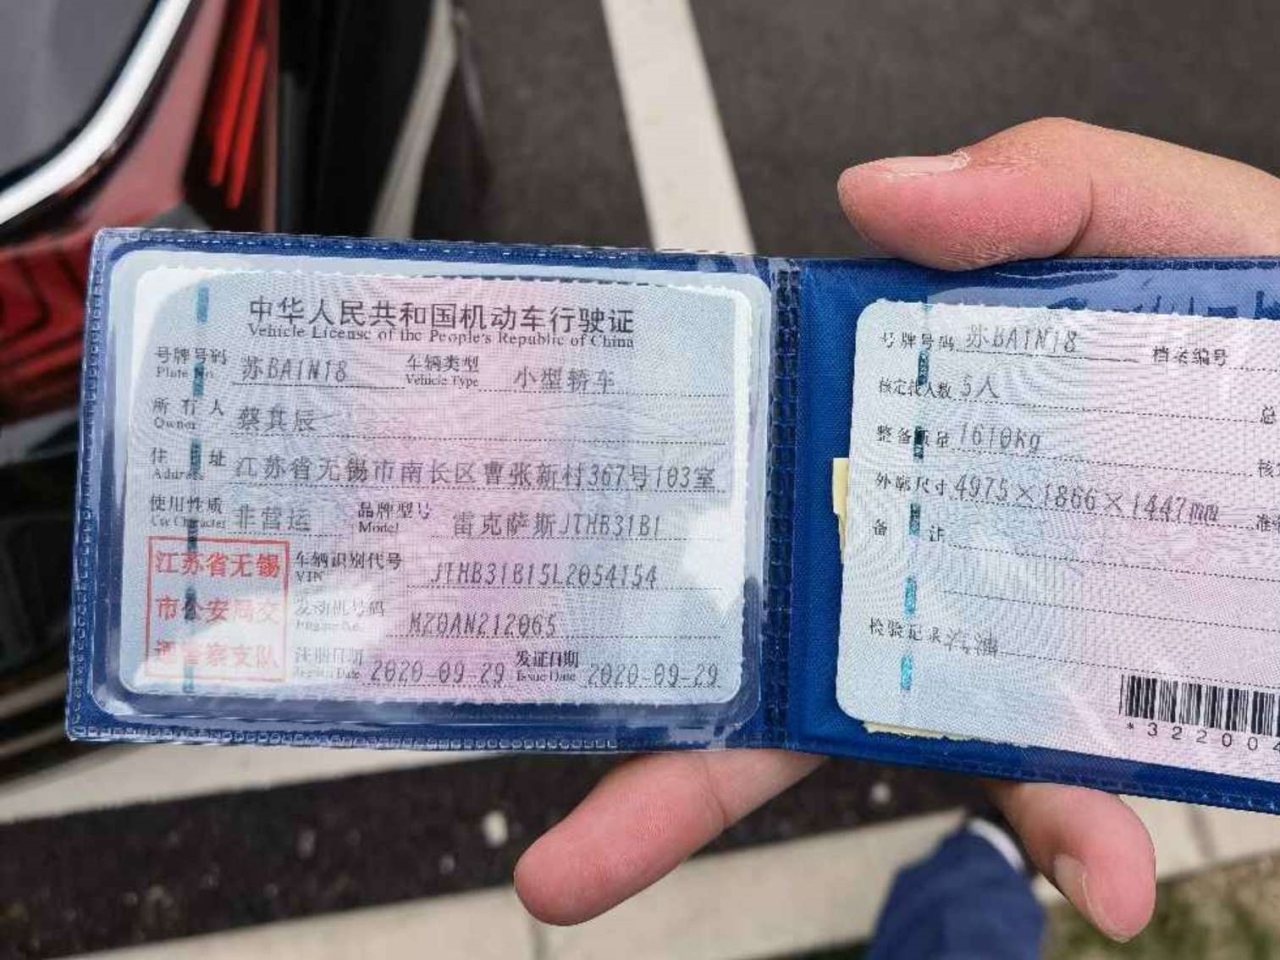 中华人民共和国机动车行驶证
Vehicle License of the People's Republic of China
号牌号码 苏BA1N18 车辆类型 小型轿车
Plate No. Vehicle Type
所有人 蔡其辰
Owner
住址 江苏省无锡市南长区曹张新村367号103室
Address
使用性质 非营运 品牌型号 雷克萨斯JTHB31B1
Use Character Model
江苏省无锡
市公安局交
通警察支队
车辆识别代号 JTHB31B15L2054154
VIN
发动机号码 M20AN212065
Engine No.
注册日期 2020-09-29 发证日期 2020-09-29
Register Date Issue Date
号牌号码 苏BA1N18 档案编号
核定载人数 5人 总
整备质量 1610kg 核
外廓尺寸 4975×1866×1447mm 准
备注
检验记录 汽油
*322004